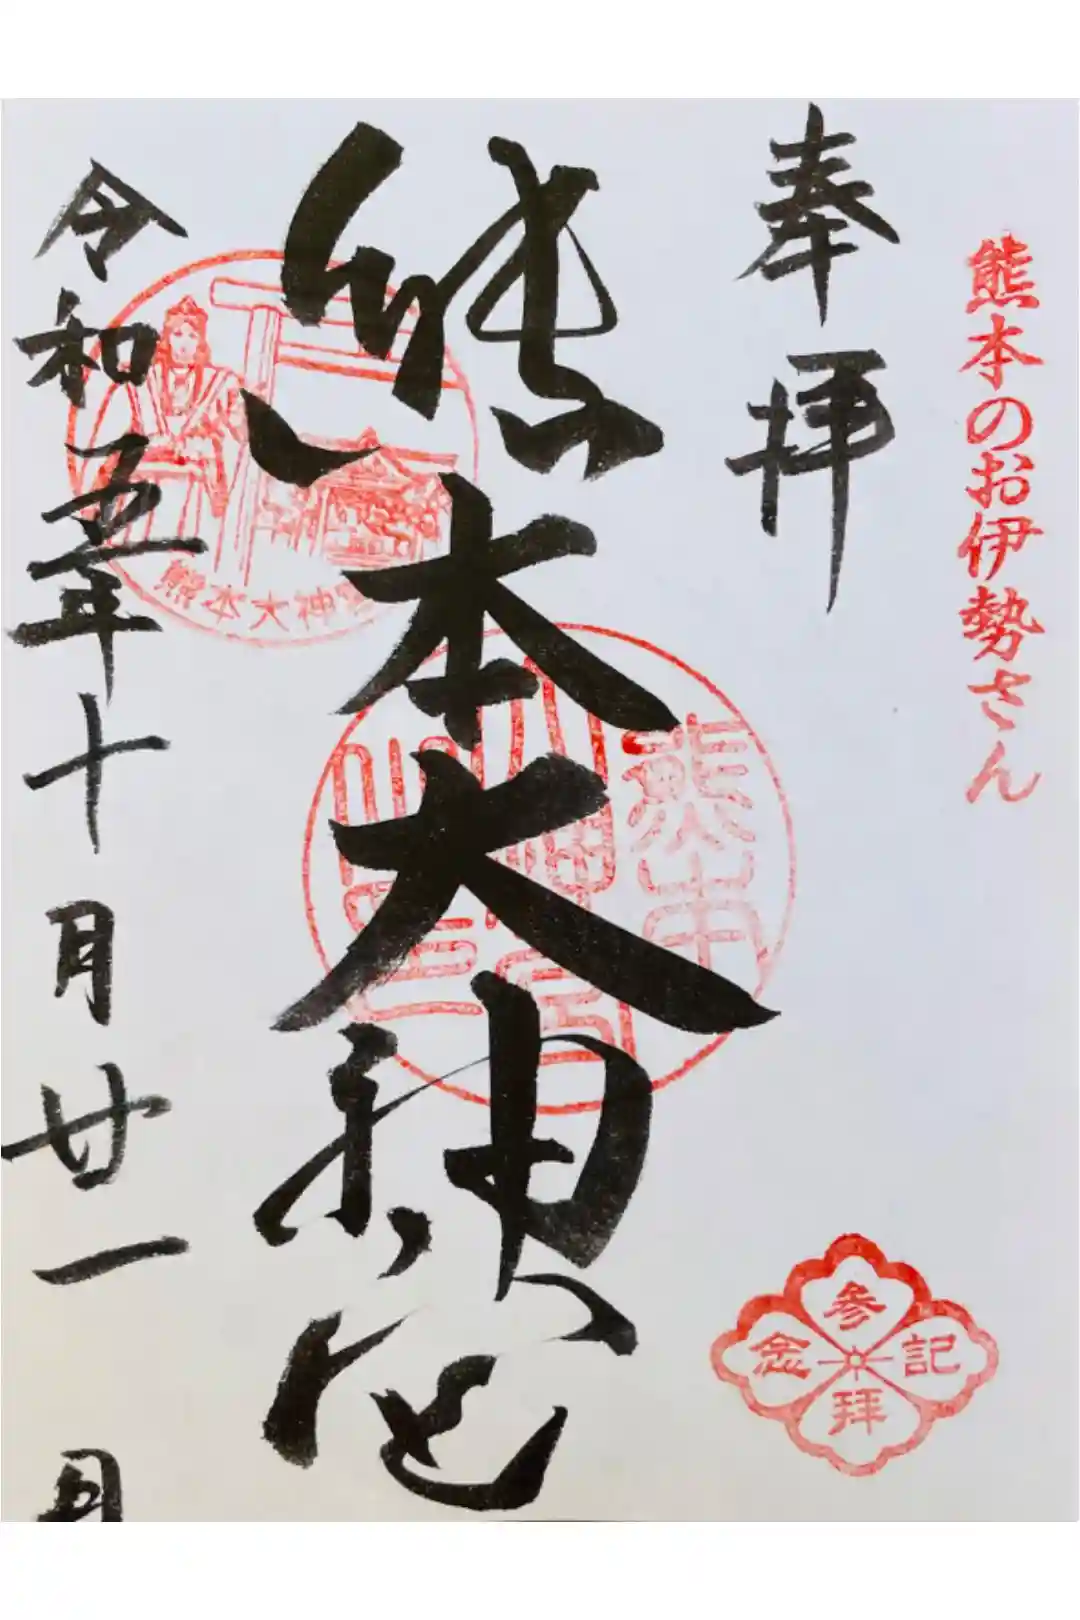 熊本のお伊勢さん
奉拝
熊本大神宮
令和五年十月廿一日
熊本大神宮
参拝記念